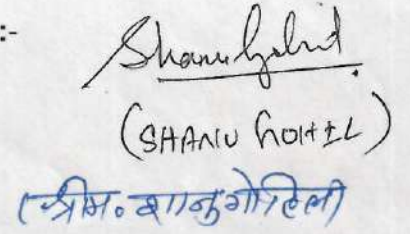 :-
Shanu Gohil
(SHANU GOHIL)
(श्रीम. शानु गोहिल)